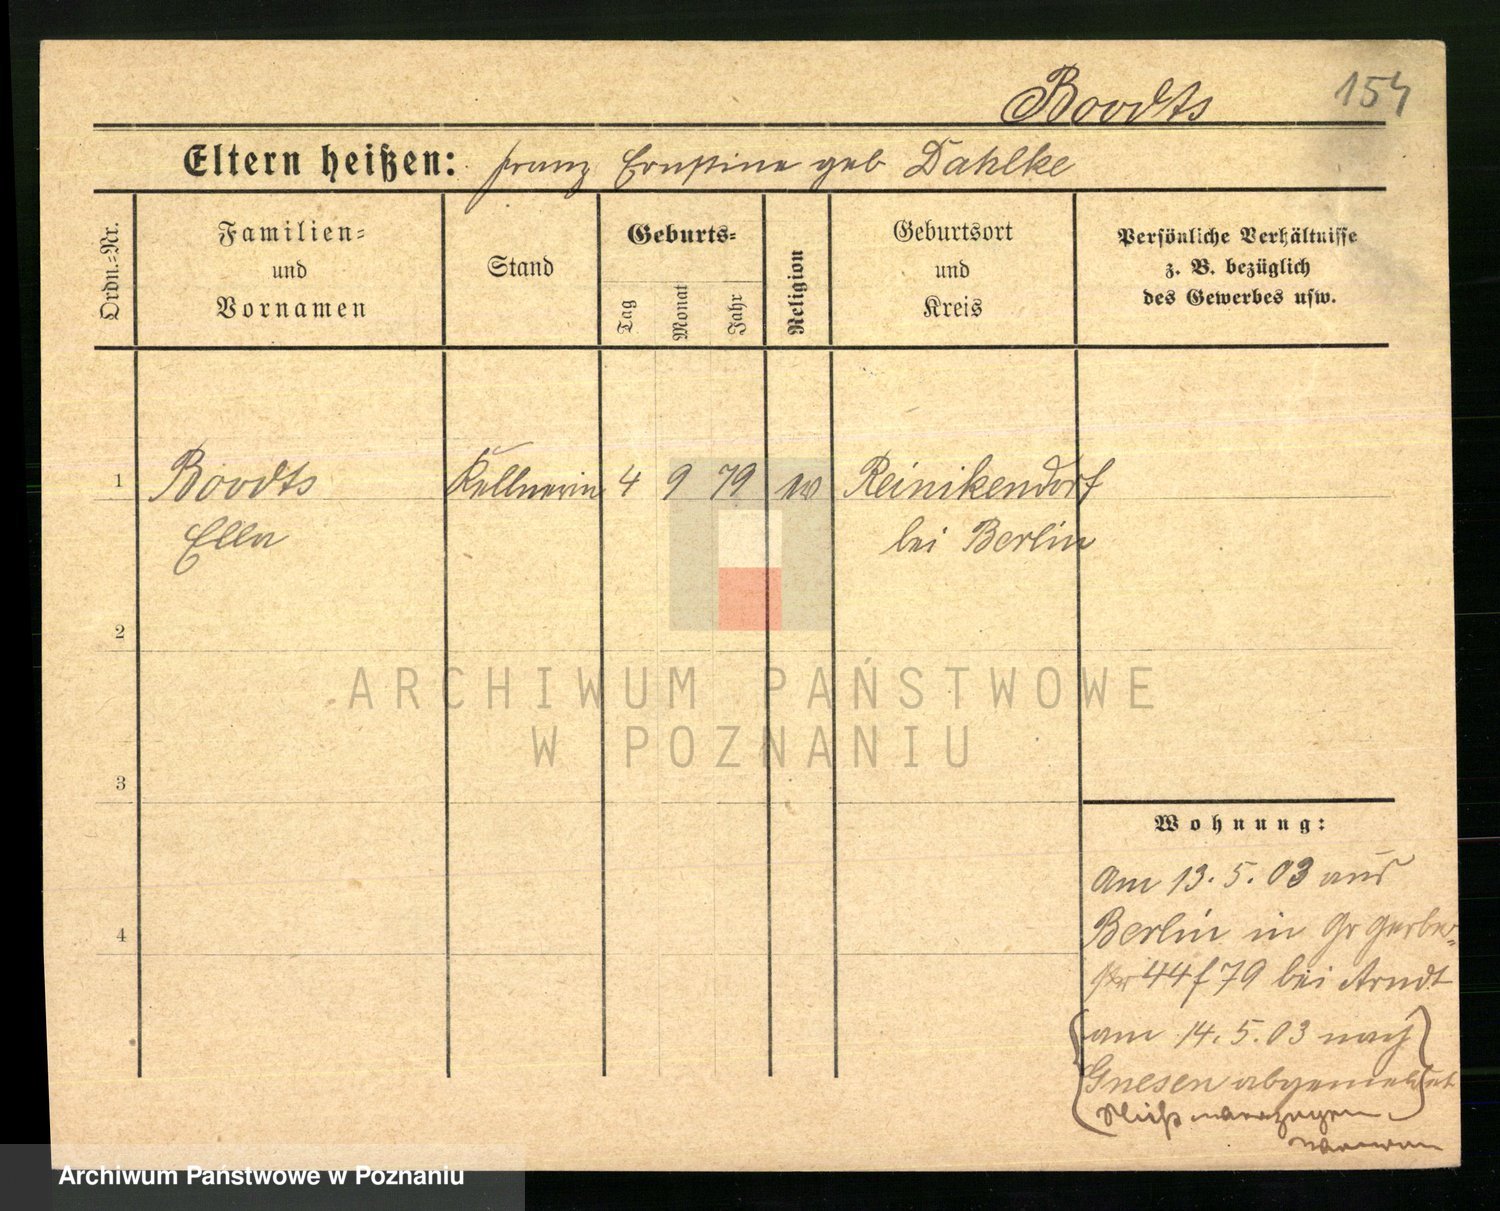 Boodts
154
Eltern heißen: Franz Ernstine geb Dahlke
Ordn.=Nr.
Familien=
und
Vornamen
Stand
Geburts=
Tag
Monat
Jahr
Religion
Geburtsort
und
Kreis
Persönliche Verhältnisse
z. B. bezüglich
des Gewerbes usw.
1 Boodts Kellnerin 4 9 79 ev Reinikendorf
Ella bei Berlin
2
3
4
Wohnung:
Am 13. 5. 03 aus
Berlin in Gr Gerber=
str 44 f 79 bei Arndt
am 14. 5. 03 nach
Gnesen abgemeldet
ARCHIWUM PAŃSTWOWE
W POZNANIU
Archiwum Państwowe w Poznaniu